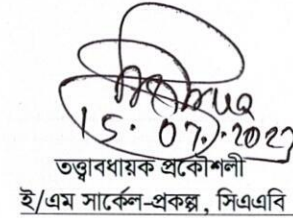 15.07.2027
তত্ত্বাবধায়ক প্রকৌশলী
ই/এম সার্কেল-প্রকল্প, সিএএবি